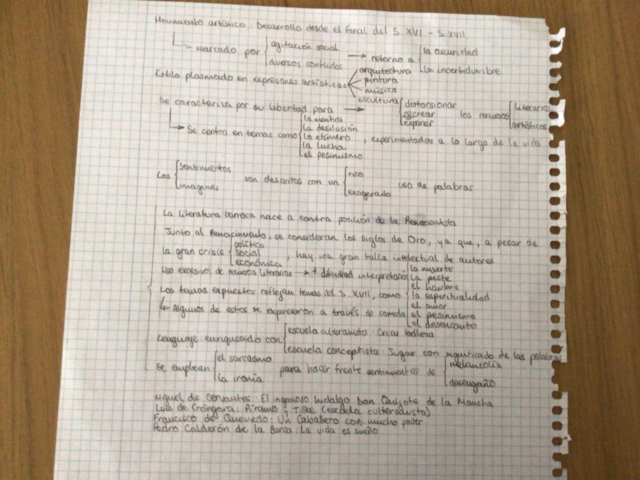 Movimiento artístico: Desarrollo desde el final del S. XVI - S. XVII
marcado por agitación social
diversos conflictos
retorno a la oscuridad
la incertidumbre
Estilo plasmado en expresiones artísticas
arquitectura
pintura
música
escultura
Se caracteriza por su libertad para
distorsionar
recrear
exponer
los recursos
literarios
artísticos
Se centra en temas como
la mentira
la desilusión
lo efímero
la lucha
el pesimismo
, experimentados a lo largo de la vida
Los sentimientos
imágenes
son descritos con un rico
exagerado
uso de palabras
La literatura barroca nace a contra posición de la Renacentista
Junto al Renacimiento, se consideran los siglos de Oro, ya que, a pesar de
la gran crisis política
social
económica
, hay una gran talla intelectual de autores
Uso excesivo de recursos literarios → + dificultad interpretados
Los temas expuestos reflejan temas del S. XVII, como
la muerte
la peste
el hambre
la espiritualidad
el amor
el pesimismo
el desencanto
Algunos de estos se expresaron a través de comedia
Lenguaje enriquecido con
escuela culteranista: Crear belleza
escuela conceptista: Jugar con significado de las palabras
Se emplean el sarcasmo
la ironía
para hacer frente sentimientos de
melancolía
desengaño
Miguel de Cervantes: El ingenioso hidalgo Don Quijote de la Mancha
Luis de Góngora: Píramo y Tisbe (escuela culteranista)
Francisco de Quevedo: Un Caballero con mucho poder
Pedro Calderón de la Barca: La vida es sueño